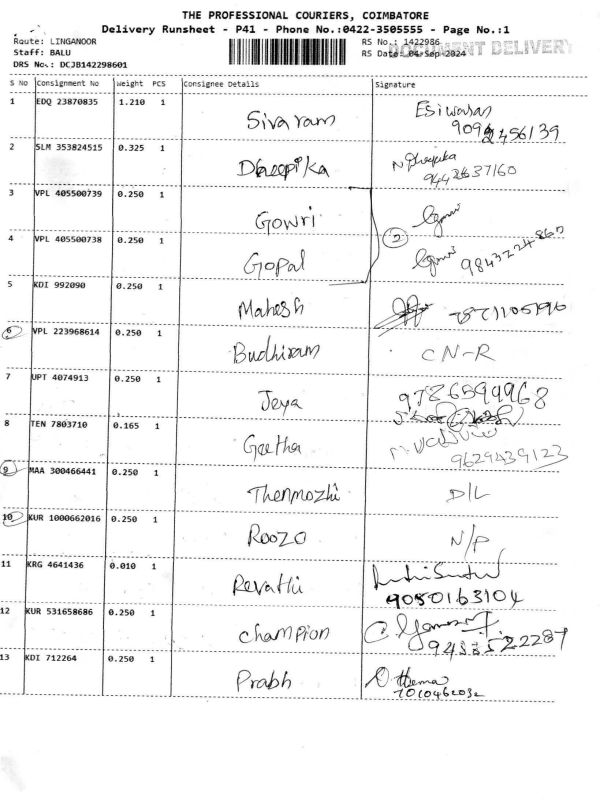 THE PROFESSIONAL COURIERS, COIMBATORE
Delivery Runsheet - P41 - Phone No.:0422-3505555 - Page No.:1
Route: LINGANOOR RS No.: 1422986
Staff: BALU RS Date: 04-Sep-2024 DOCUMENT DELIVERY
DRS No.: DCJB142298601
S No Consignment No Weight PCS Consignee Details Signature
1 EDQ 23870835 1.210 1 Sivaram Esiwaran
9092456139
2 SLM 353824515 0.325 1 Dheepika N Dheepika
9442637160
3 VPL 405500739 0.250 1 Gowri
4 VPL 405500738 0.250 1 Gopal 2 9843224867
5 KDI 992090 0.250 1 Mahesh
6 VPL 223968614 0.250 1 Budhiram CN-R
7 UPT 4074913 0.250 1 Jeya 9786599968
8 TEN 7803710 0.165 1 Geetha
9629439123
9 MAA 300466441 0.250 1 Thenmozhi D/L
10 KUR 1000662016 0.250 1 Roozo N/P
11 KRG 4641436 0.010 1 Revathi
9050163104
12 KUR 531658686 0.250 1 champion
9433522287
13 KDI 712264 0.250 1 Prabh Hema
7010462032